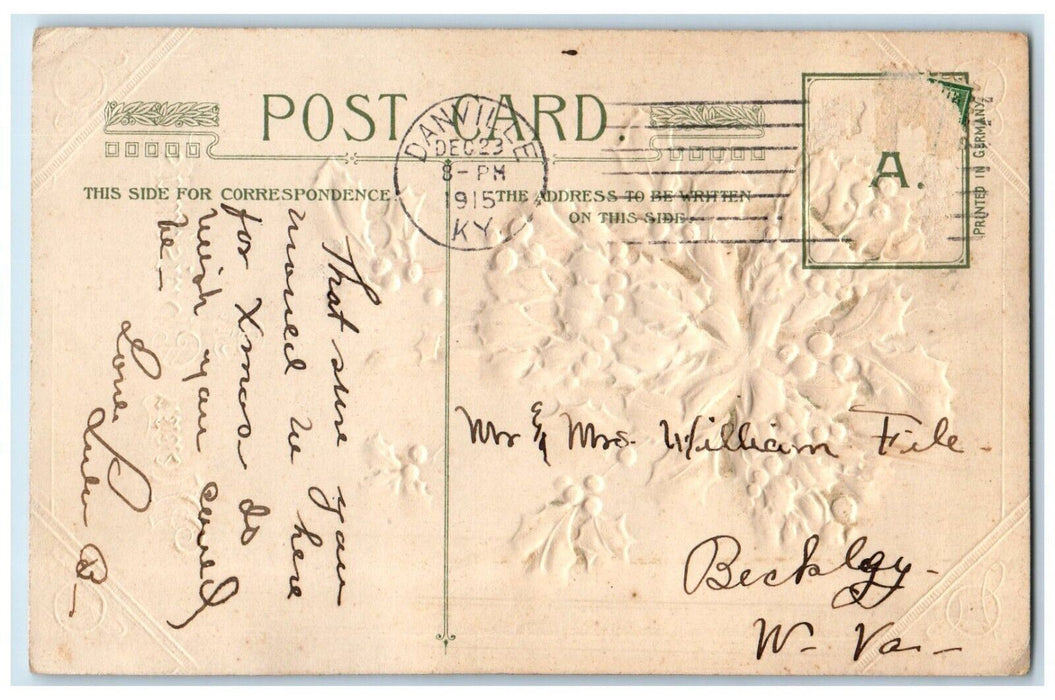 POST CARD.
THIS SIDE FOR CORRESPONDENCE.
THE ADDRESS TO BE WRITTEN
ON THIS SIDE.
DANVILLE
DEC 23
8-PM
1915
KY.
A.
PRINTED IN GERMANY
That sure you
moved we here
for Xmas. do
wish you could
be-
Mr & Mrs. William File.
Beckley-
W. Va.-